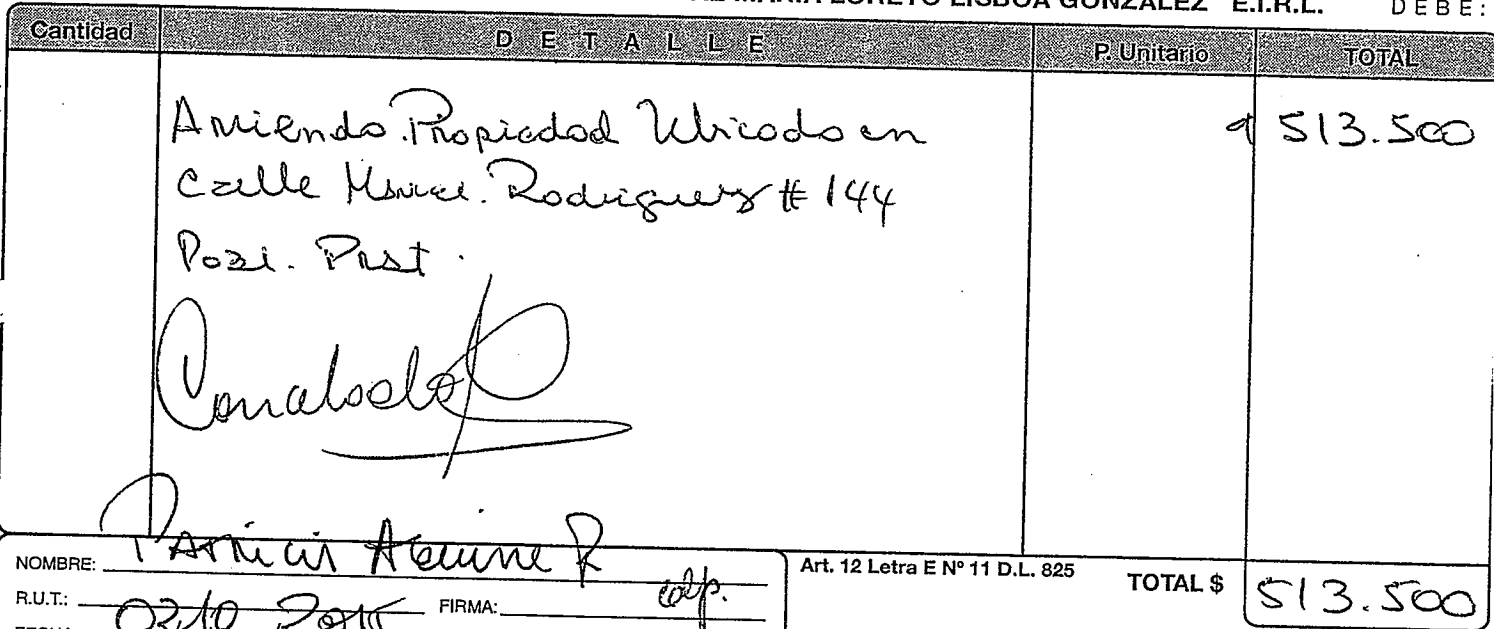 MARIA LORETO LISBOA GONZALEZ E.I.R.L. DEBE:
Cantidad DETALLE P. Unitario TOTAL
Arriendo Propiedad Ubicado en $ 513.500
Calle Manuel Rodriguez # 144
Cancelado
NOMBRE: Patricia Aguirre R
R.U.T.: FIRMA:
Art. 12 Letra E Nº 11 D.L. 825 TOTAL $ 513.500